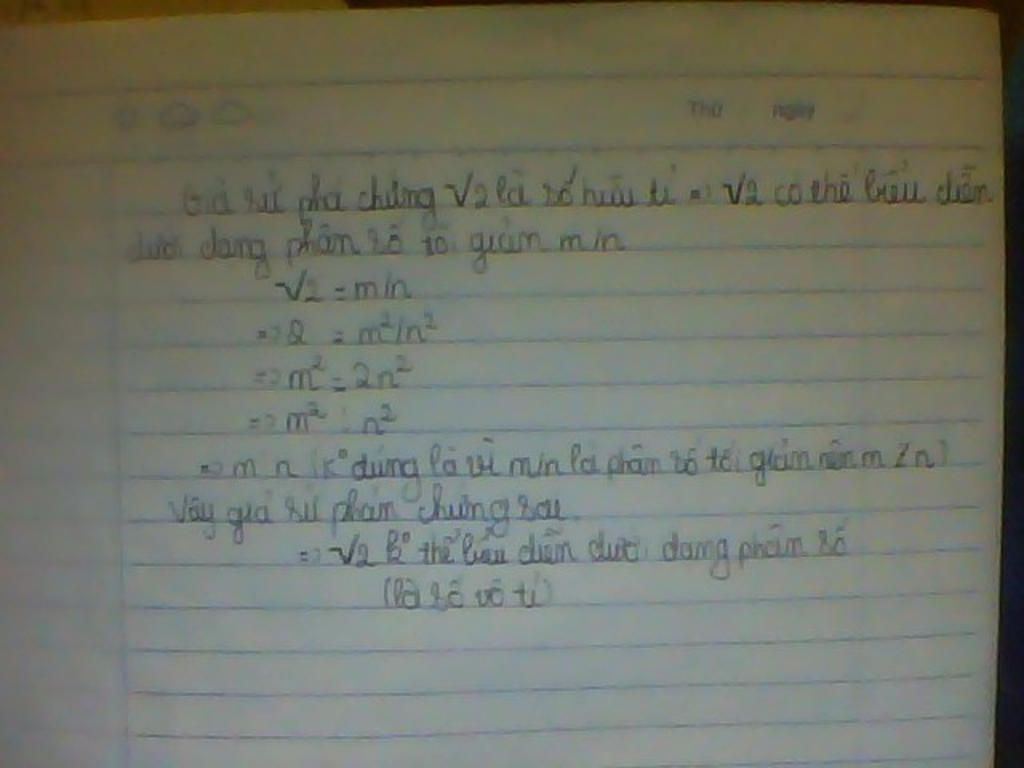 Thứ ngày
Giả sử phả chứng √2 là số hữu tỉ => √2 có thể biểu diễn
dưới dạng phân số tối giản m/n
√2 = m/n
=> 2 = m²/n²
=> m² = 2n²
=> m² ⋮ n²
=> m n (k° đúng là vì m/n là phân số tối giản nên m n)
Vậy giả sử phản chứng sai
=> √2 k° thể biểu diễn dưới dạng phân số
(là số vô tỉ)